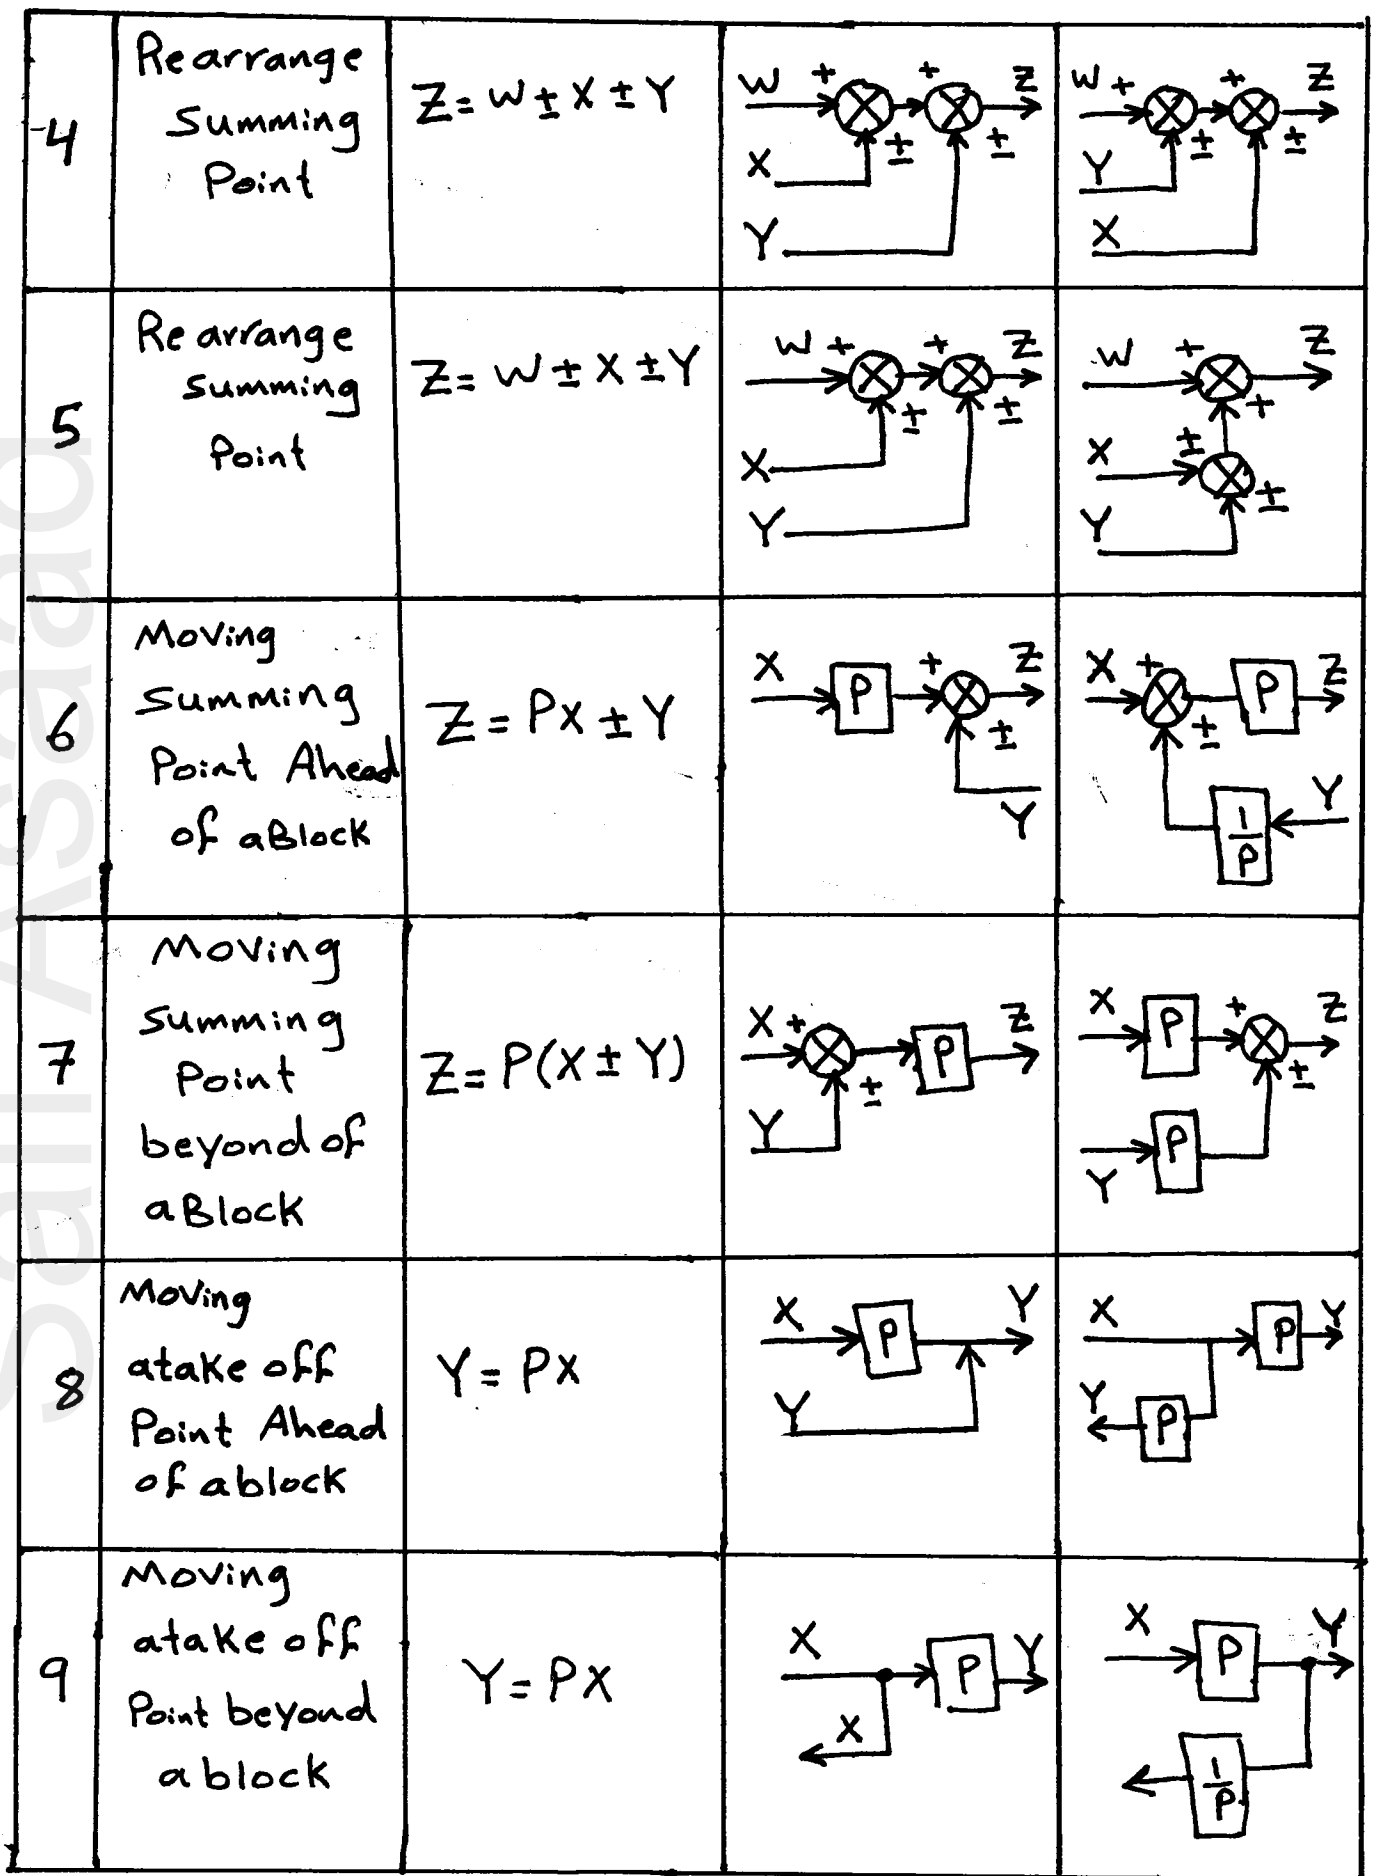 4
Rearrange
Summing
Point
Z = W ± X ± Y
W + + Z
± ±
X
Y
W + + Z
± ±
Y
X
5
Rearrange
Summing
Point
Z = W ± X ± Y
W + + Z
± ±
X
Y
W + Z
+
X ±
±
Y
6
Moving
Summing
Point Ahead
of aBlock
Z = PX ± Y
X P + Z
±
Y
X + P Z
±
1/P Y
7
Moving
Summing
Point
beyond of
aBlock
Z = P(X ± Y)
X + P Z
±
Y
X P + Z
±
P
Y
8
Moving
atake off
Point Ahead
of ablock
Y = PX
X P Y
Y
X P Y
Y P
9
Moving
atake off
Point beyond
ablock
Y = PX
X P Y
X
X P Y
1/P
Saif Asaad